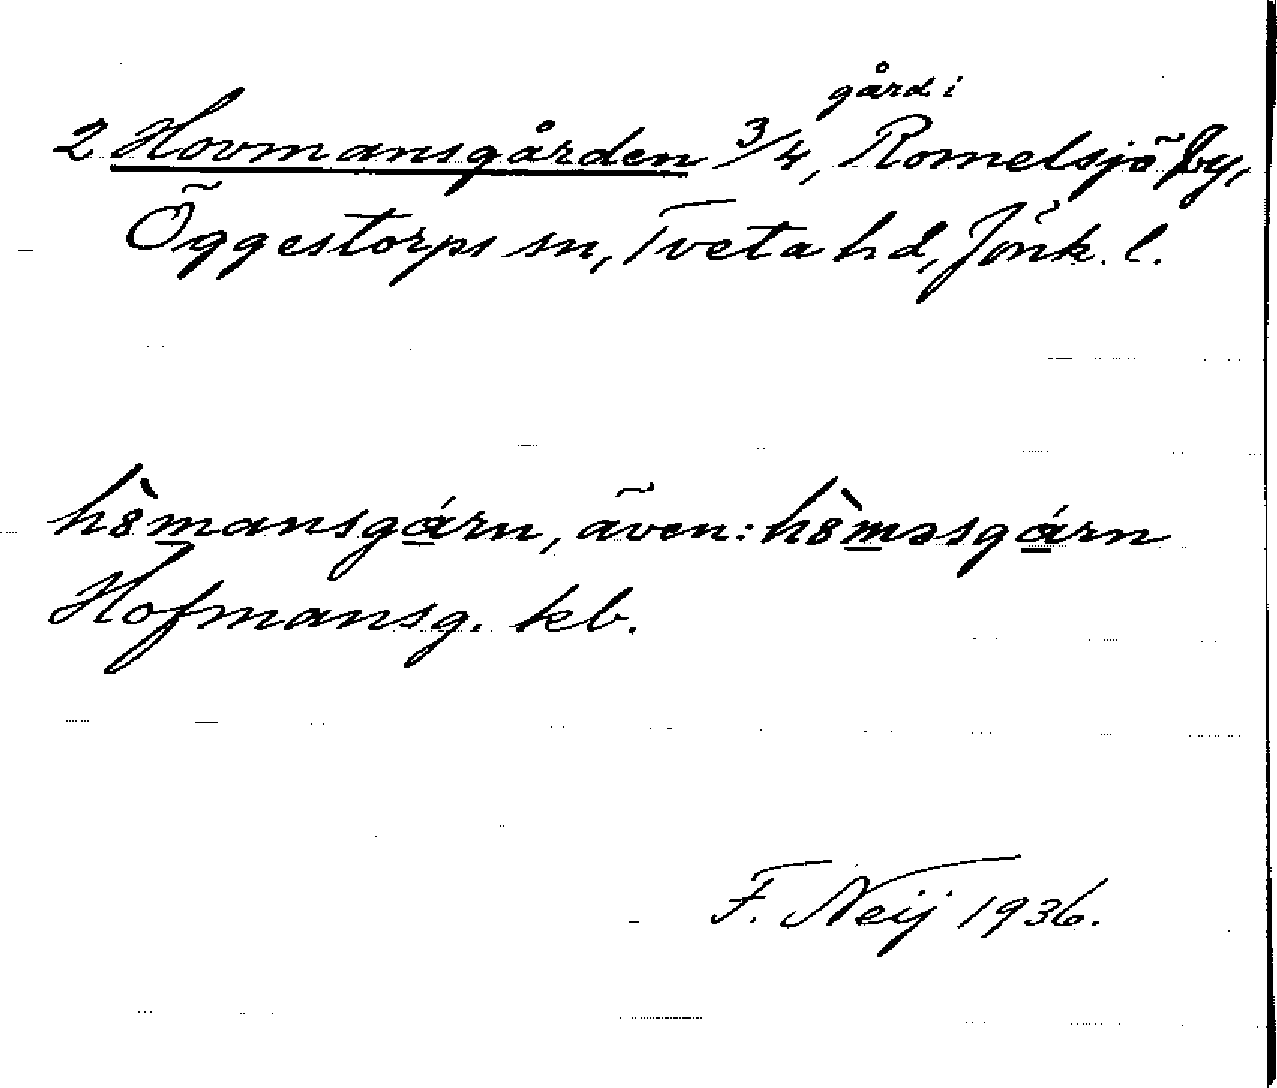 gård i
2 Hovmansgården 3/4, Romelsjö by,
Öggestorps sn, Tveta hd, Jönk. l.
hȣ̀mansgárn, även: hȣ̀məsgárn
Hofmansg. kb.
F. Neij 1936.